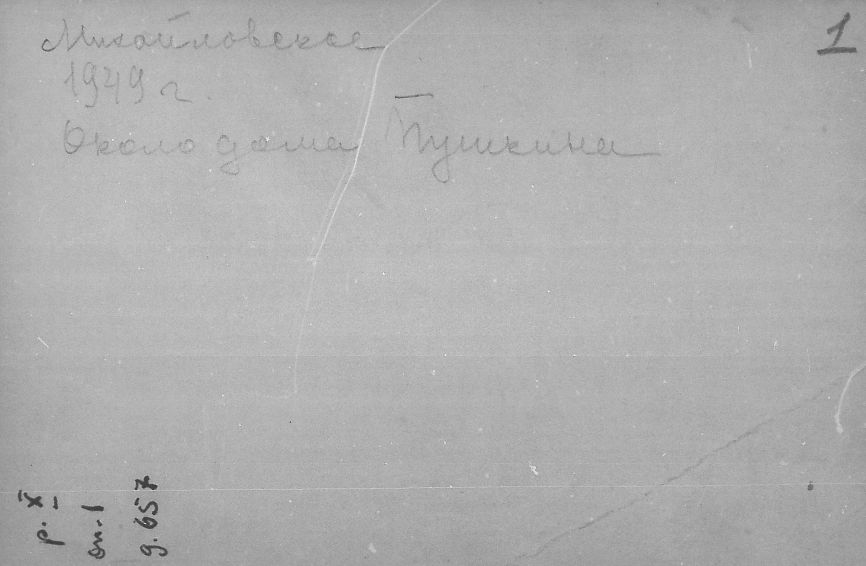 1
Михайловское
1949 г.
Около дома Пушкина
р. X
оп. 1
д. 657